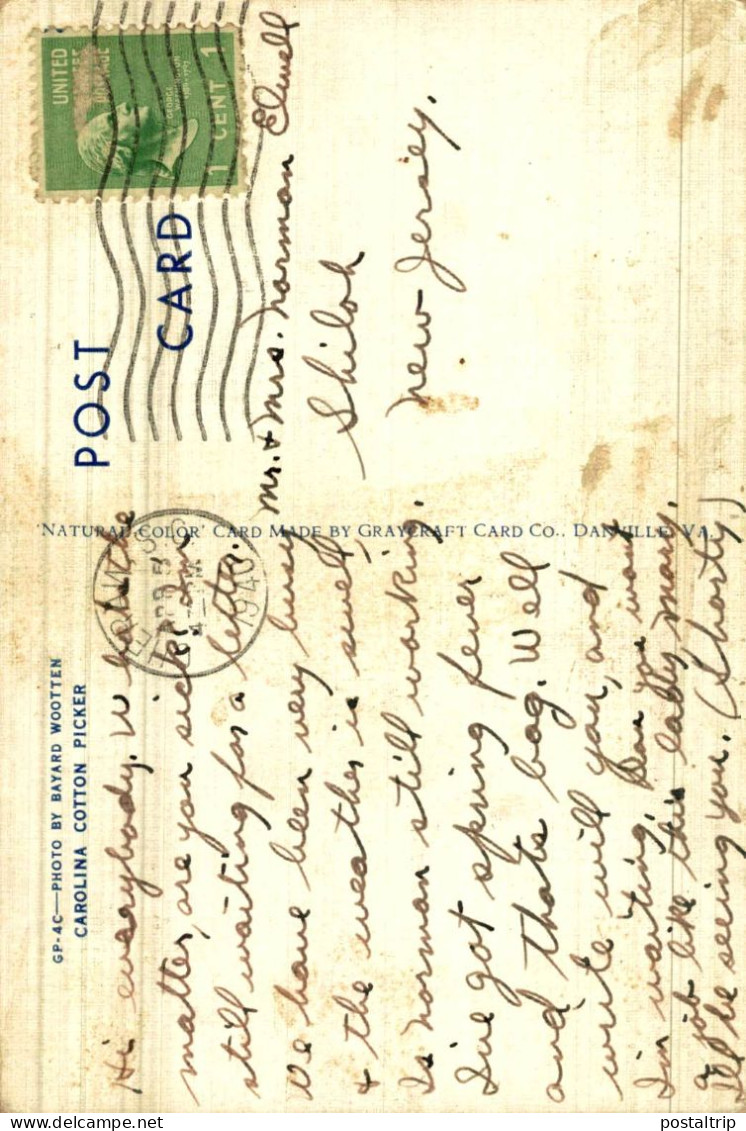 GP-4C—PHOTO BY BAYARD WOOTTEN
CAROLINA COTTON PICKER
POST CARD
UNITED
STATES
POSTAGE
GEORGE
WASHINGTON
1789-1797
1 CENT 1
1940
Hi everybody. Whats the
matter, are you sick, om
still waiting for a letter.
We have been very busy
+ the weather is swell,
Is norman still working.
I've got spring fever
and thats bag. Well
write will you, and
I'm waiting, Dan you want
a job like this lady, mary.
I'll be seeing you. (Shorty).
'NATURAL COLOR' CARD MADE BY GRAYCRAFT CARD CO., DANVILLE, VA.
mr. + mrs. norman Elwell
Shiloh
new Jersey.
postaltrip
postaltrip